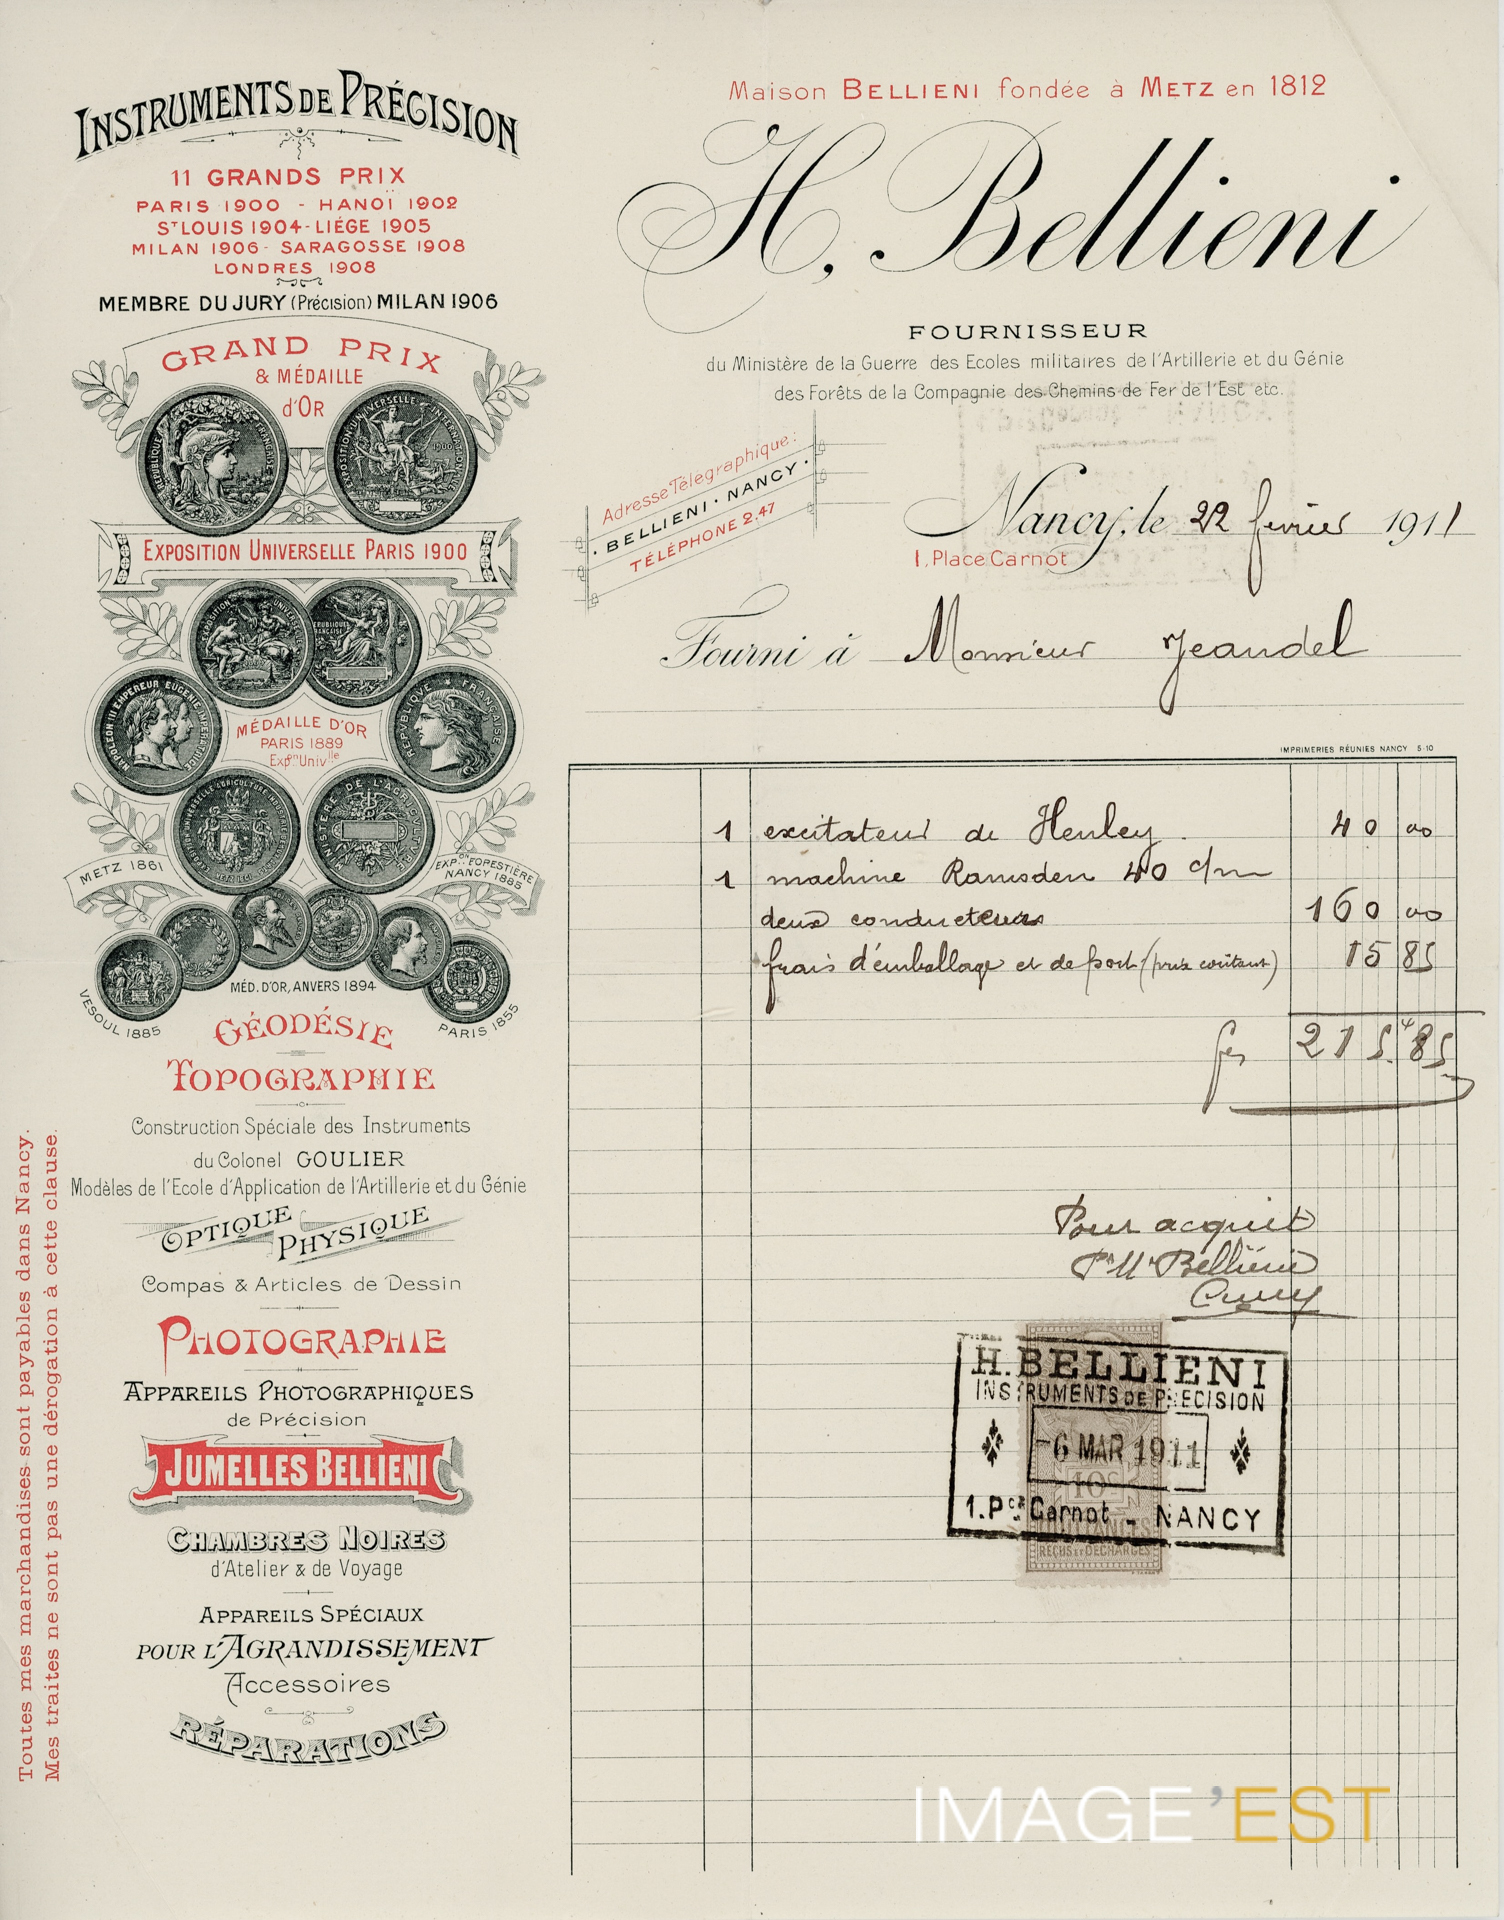 INSTRUMENTS DE PRÉCISION
11 GRANDS PRIX
PARIS 1900 - HANOÏ 1902
ST LOUIS 1904 - LIÉGE 1905
MILAN 1906 - SARAGOSSE 1908
LONDRES 1908
MEMBRE DU JURY (Précision) MILAN 1906
GRAND PRIX
& MÉDAILLE
d'OR
RÉPUBLIQUE FRANÇAISE
EXPOSITION UNIVERSELLE INTERNATIONALE 1900
EXPOSITION UNIVERSELLE PARIS 1900
EXPOSITION UNIVERSELLE
RÉPUBLIQUE FRANÇAISE
NAPOLEON III EMPEREUR EUGENIE IMPERATRICE
RÉPUBLIQUE FRANÇAISE
MÉDAILLE D'OR
PARIS 1889
Expon Univlle
MINISTÈRE DE L'AGRICULTURE
METZ 1861
EXPon FORESTIÈRE
NANCY 1885
MÉD. D'OR, ANVERS 1894
VESOUL 1885
PARIS 1855
GÉODÉSIE
TOPOGRAPHIE
Construction Spéciale des Instruments
du Colonel GOULIER
Modèles de l'Ecole d'Application de l'Artillerie et du Génie
OPTIQUE PHYSIQUE
Compas & Articles de Dessin
PHOTOGRAPHIE
APPAREILS PHOTOGRAPHIQUES
de Précision
JUMELLES BELLIENI
CHAMBRES NOIRES
d'Atelier & de Voyage
APPAREILS SPÉCIAUX
POUR L'AGRANDISSEMENT
Accessoires
RÉPARATIONS
Toutes mes marchandises sont payables dans Nancy.
Mes traites ne sont pas une dérogation à cette clause.
Maison BELLIENI fondée à METZ en 1812
H. Bellieni
FOURNISSEUR
du Ministère de la Guerre des Ecoles militaires de l'Artillerie et du Génie
des Forêts de la Compagnie des Chemins de Fer de l'Est etc.
Adresse Télégraphique:
BELLIENI · NANCY
TÉLÉPHONE 2.47
Nancy, le 22 fevrier 1911
1, Place Carnot
Fourni à Monsieur Jeandel
IMPRIMERIES RÉUNIES NANCY 5-10
1 excitateur de Henley 40 00
1 machine Ramsden 40 c/m
deux conducteurs 160 00
frais d'emballage et de port (prix coûtant) 15 85
frs 215 85
Pour acquit
Pr Mr Bellieni
H. BELLIENI
INSTRUMENTS DE PRECISION
-6 MAR 1911
10c
1. Pce Carnot - NANCY
QUITTANCES
REÇUS ET DÉCHARGES
IMAGE'EST